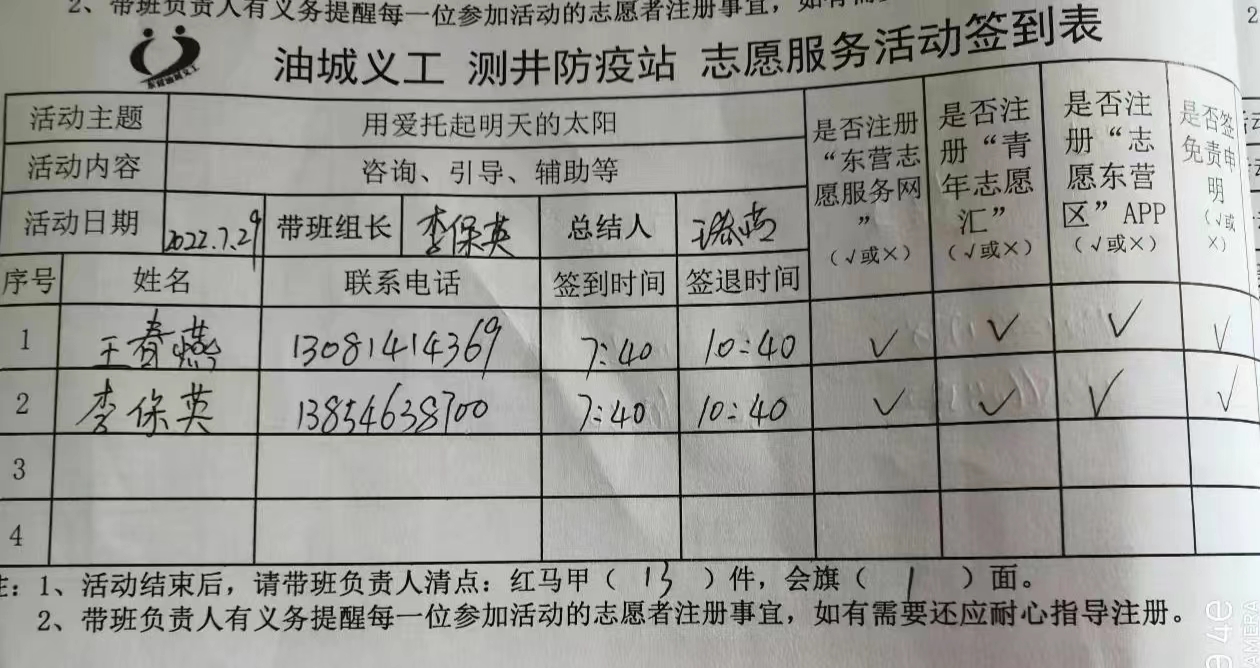 2、带班负责人有义务提醒每一位参加活动的志愿者注册事宜，如有需
东营油城义工
油城义工 测井防疫站 志愿服务活动签到表
活动主题 用爱托起明天的太阳 是否注册“东营志愿服务网”（√或×） 是否注册“青年志愿汇”（√或×） 是否注册“志愿东营区”APP（√或×） 是否签免责申明（√或×）
活动内容 咨询、引导、辅助等
活动日期 2022.7.29 带班组长 李保英 总结人 王春燕
序号 姓名 联系电话 签到时间 签退时间
1 王春燕 13081414369 7:40 10:40 √ √ √ √
2 李保英 13854638700 7:40 10:40 √ √ √ √
3
4
注：1、活动结束后，请带班负责人清点：红马甲（ 13 ）件，会旗（ 1 ）面。
2、带班负责人有义务提醒每一位参加活动的志愿者注册事宜，如有需要还应耐心指导注册。